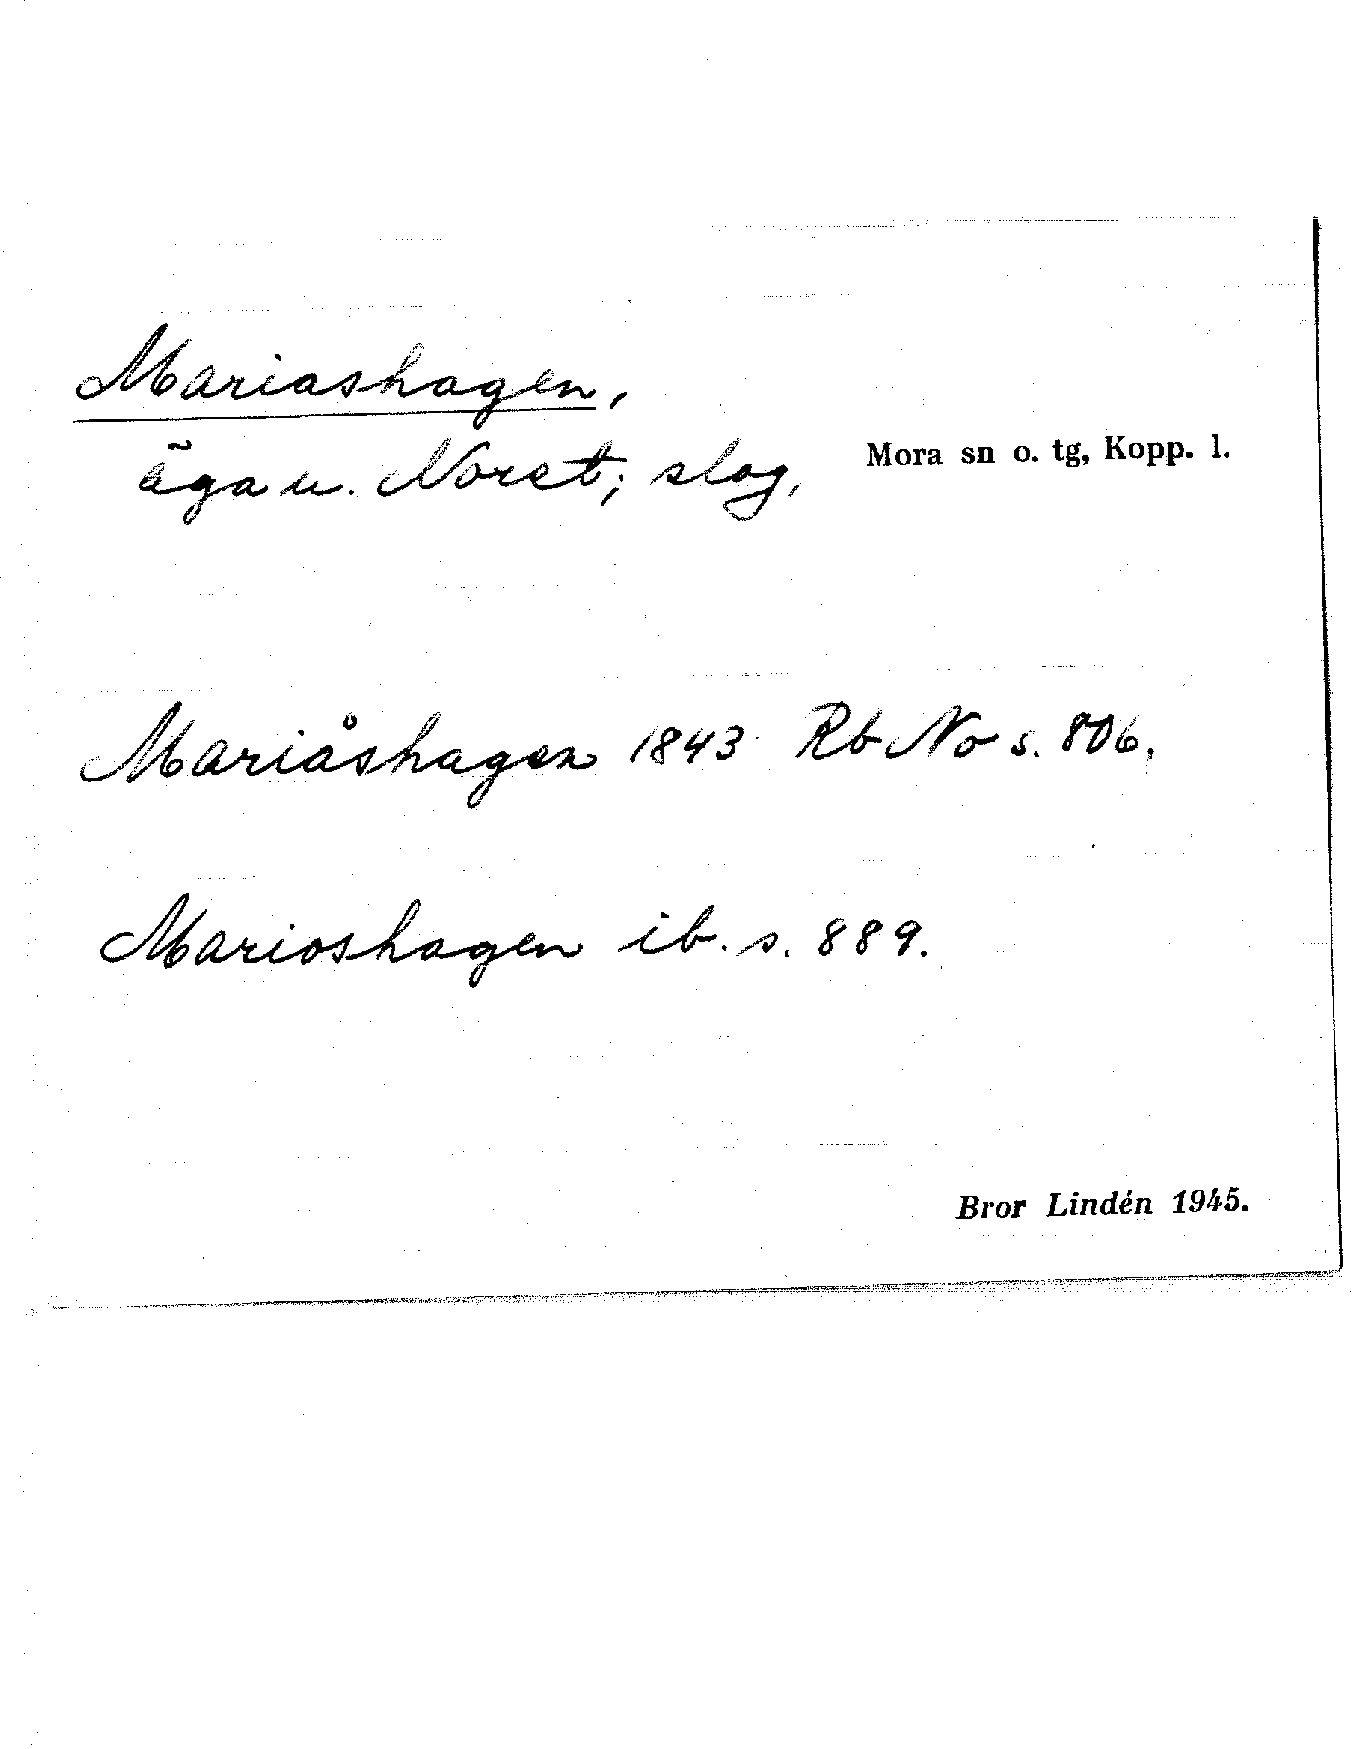 Mariashagen,
äga u. Noret; slog,
Mora sn o. tg, Kopp. l.
Mariåshagen 1843 Rb No s. 806,
Marioshagen ib. s. 889.
Bror Lindén 1945.